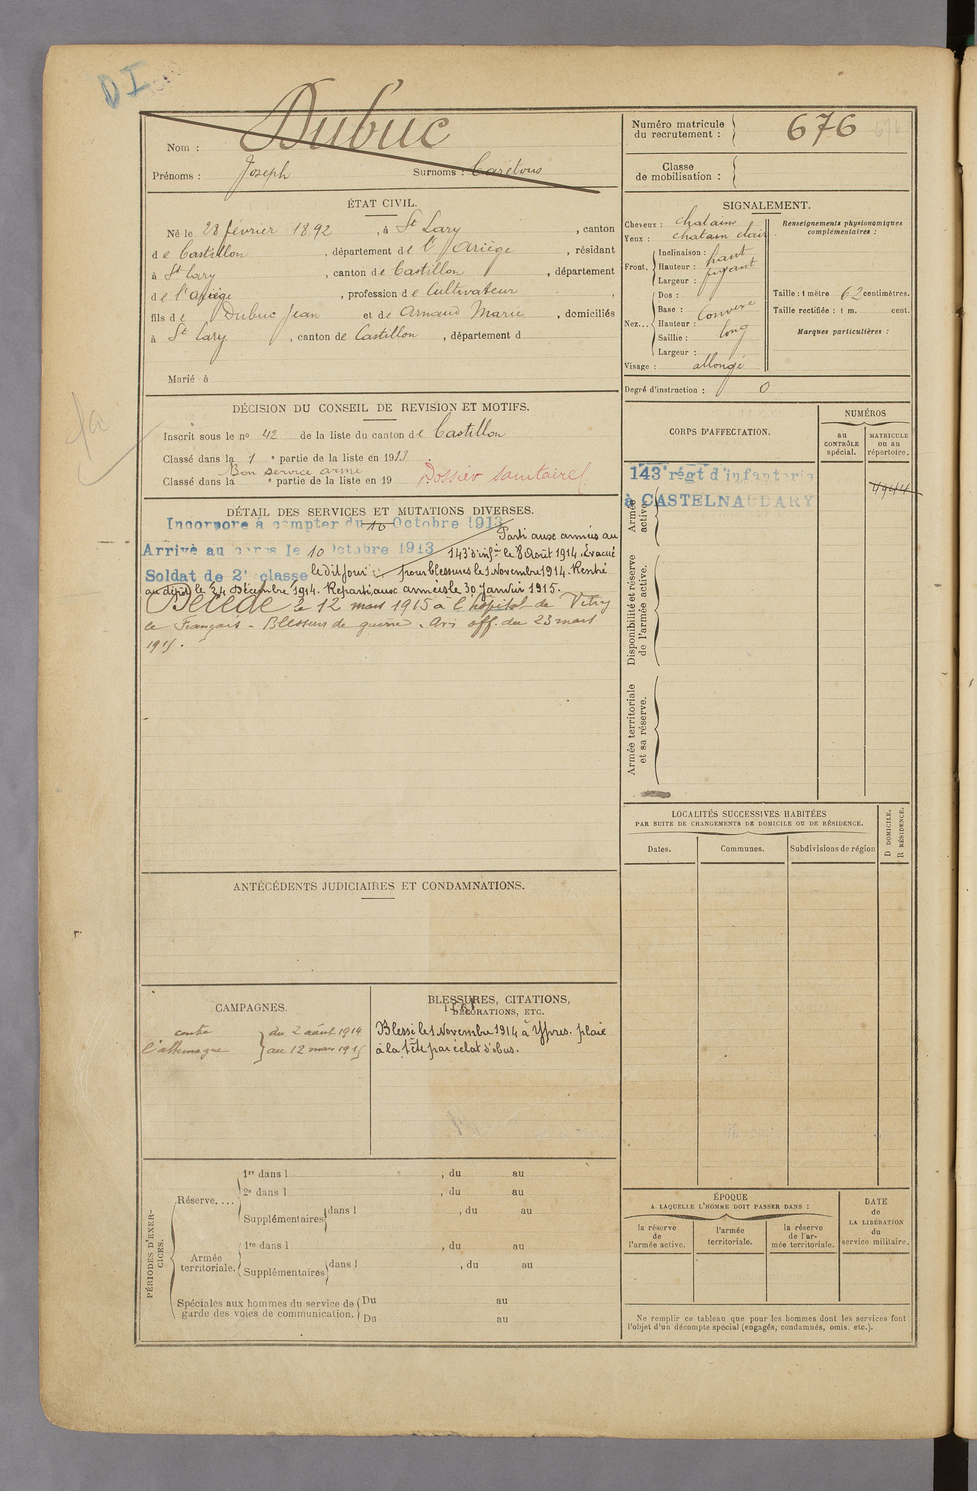 DI
Nom : Dubuc
Prénoms : Joseph Surnoms : Carétous
Numéro matricule du recrutement : 676
Classe de mobilisation :
ÉTAT CIVIL.
Né le 28 février 1892, à St Lary, canton
de Castillon, département de l'Ariège, résidant
à St Lary, canton de Castillon, département
de l'Ariège, profession de Cultivateur,
fils de Dubuc Jean et de Arnaud Marie, domiciliés
à St Lary, canton de Castillon, département d
Marié à
SIGNALEMENT.
Cheveux : chatains
Yeux : chatain clair
Front. Inclinaison : haut
Hauteur : fuyant
Largeur :
Nez... Dos :
Base : convexe
Hauteur :
Saillie : long
Largeur :
Visage : allongé
Renseignements physionomiques complémentaires :
Taille : 1 mètre 62 centimètres.
Taille rectifiée : 1 m. cent.
Marques particulières :
Degré d'instruction : 0
DÉCISION DU CONSEIL DE REVISION ET MOTIFS.
Inscrit sous le no 42 de la liste du canton de Castillon
Classé dans la 1 e partie de la liste en 1913.
Bon service armé
Classé dans la e partie de la liste en 19
Dossier sanitaire
DÉTAIL DES SERVICES ET MUTATIONS DIVERSES.
Incorporé à compter du 10 Octobre 1913
Arrivé au corps le 10 Octobre 1913
Soldat de 2e classe le dit jour
Parti aux armées au
143e d'infie le 8 Août 1914. Évacué
pour blessures le 1 Novembre 1914. Rentré
au dépôt le 24 Décembre 1914. Reparti aux armées le 30 Janvier 1915.
Décédé le 12 mars 1915 à l'hôpital de Vitry
le Français - Blessures de guerre. Avis off. du 23 mars
1915.
CORPS D'AFFECTATION.
NUMÉROS
au CONTRÔLE spécial.
MATRICULE ou au répertoire.
Armée active.
143e régt d'infanterie
à CASTELNAUDARY
4944
Disponibilité et réserve de l'armée active.
Armée territoriale et sa réserve.
LOCALITÉS SUCCESSIVES HABITÉES
PAR SUITE DE CHANGEMENTS DE DOMICILE OU DE RÉSIDENCE.
D DOMICILE.
R RÉSIDENCE.
Dates.
Communes.
Subdivisions de région
ANTÉCÉDENTS JUDICIAIRES ET CONDAMNATIONS.
CAMPAGNES.
contre l'allemagne } du 2 août 1914
au 12 mars 1915
BLESSURES, CITATIONS,
DÉCORATIONS, ETC.
Blessé le 1 Novembre 1914 à Ypres. plaie
à la tête par éclat d'obus.
PÉRIODES D'EXERCICES.
Réserve....
1re dans l , du au
2e dans l , du au
Supplémentaires dans l , du au
Armée territoriale.
1re dans l , du au
Supplémentaires dans l , du au
Spéciales aux hommes du service de garde des voies de communication.
Du au
Du au
ÉPOQUE
A LAQUELLE L'HOMME DOIT PASSER DANS :
la réserve de l'armée active.
l'armée territoriale.
la réserve de l'armée territoriale.
DATE de LA LIBÉRATION du service militaire.
Ne remplir ce tableau que pour les hommes dont les services font
l'objet d'un décompte spécial (engagés, condamnés, omis. etc.).